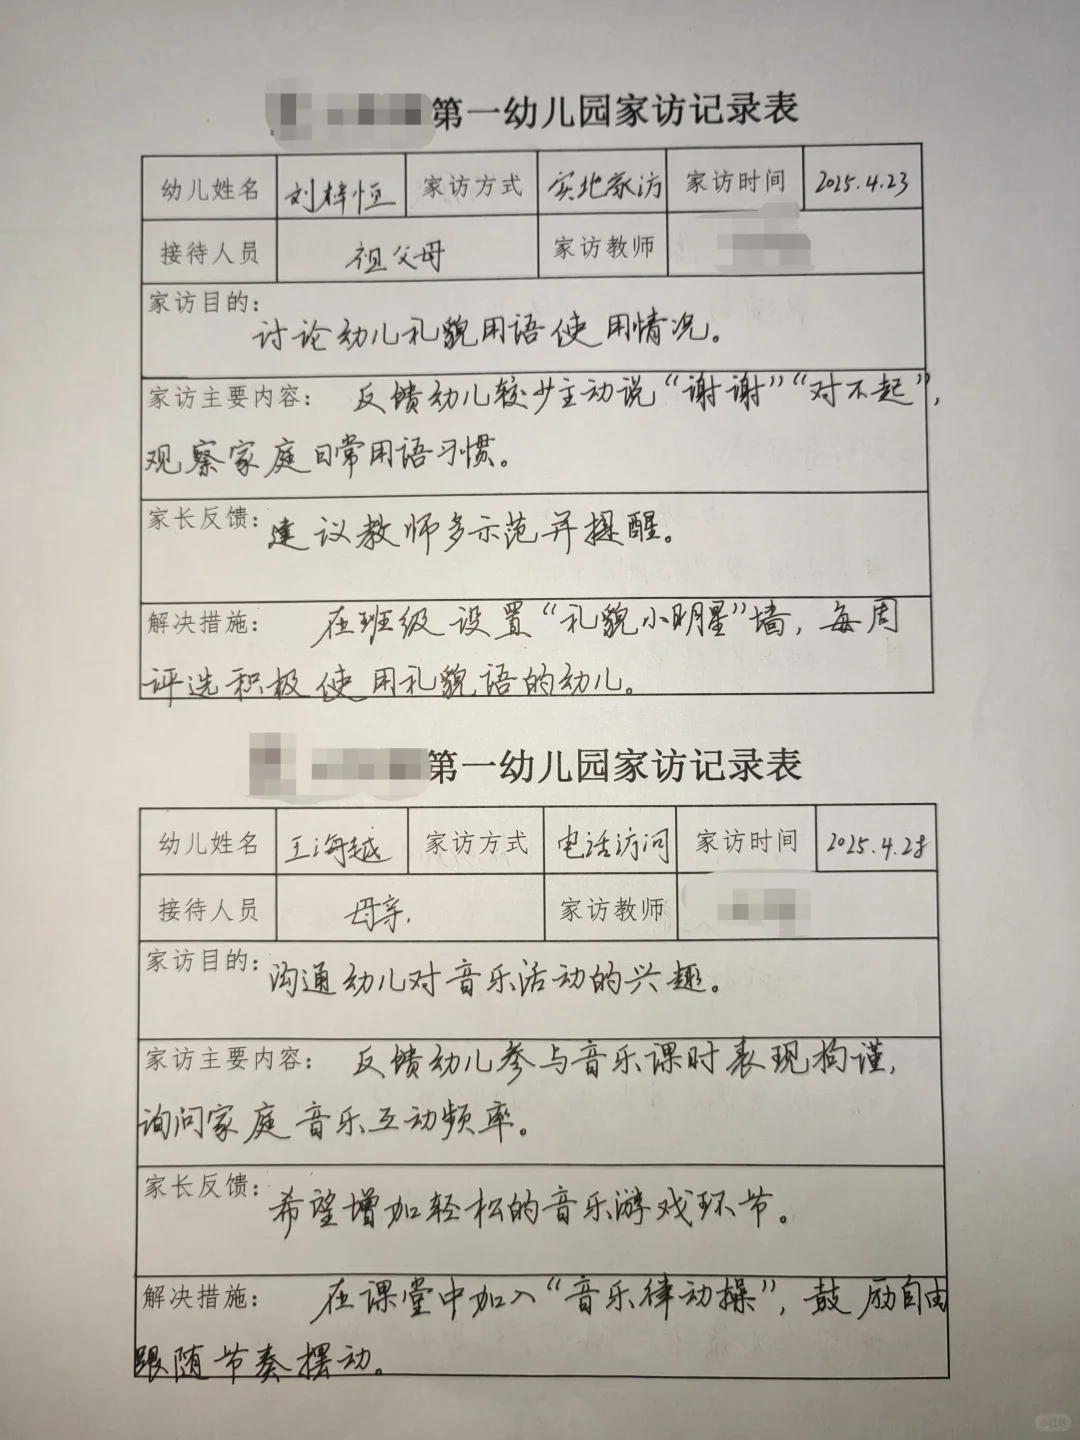 第一幼儿园家访记录表
幼儿姓名 刘梓恒 家访方式 实地家访 家访时间 2025.4.23
接待人员 祖父母 家访教师
家访目的：
讨论幼儿礼貌用语使用情况。
家访主要内容： 反馈幼儿较少主动说“谢谢”“对不起”，
观察家庭日常用语习惯。
家长反馈： 建议教师多示范并提醒。
解决措施： 在班级设置“礼貌小明星”墙，每周
评选积极使用礼貌语的幼儿。
第一幼儿园家访记录表
幼儿姓名 王海越 家访方式 电话访问 家访时间 2025.4.28
接待人员 母亲. 家访教师
家访目的： 沟通幼儿对音乐活动的兴趣。
家访主要内容： 反馈幼儿参与音乐课时表现拘谨，
询问家庭音乐互动频率。
家长反馈： 希望增加轻松的音乐游戏环节。
解决措施： 在课堂中加入“音乐律动操”，鼓励自由
跟随节奏摆动。
小红书